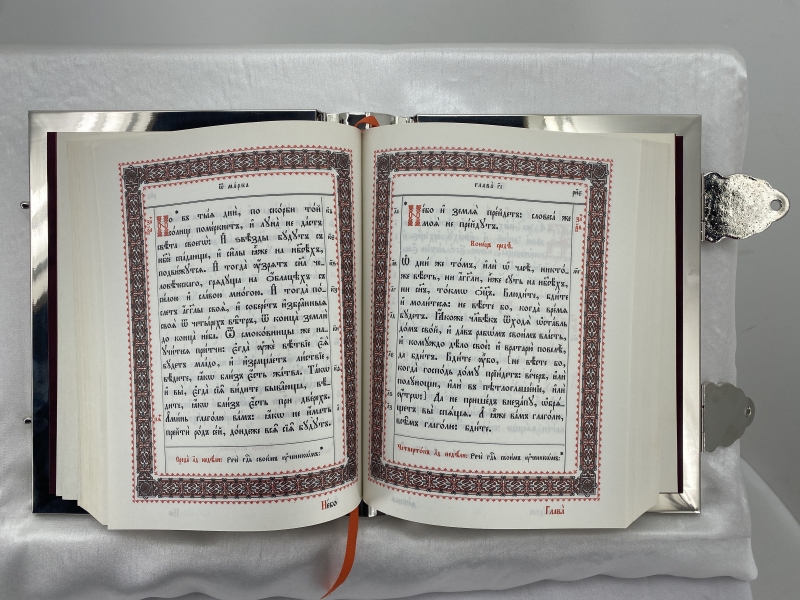 Ѿ ма́рка
Но въ ты́ѧ дни̑, по ско́рби то́й
со́лнце поме́ркнетъ, и҆ лꙋна̀ не да́стъ
свѣ́та своегѡ̀. И҆ ѕвѣ́зды бꙋ́дꙋтъ съ
нб҃сѐ спа́дающе, и҆ си̑лы ꙗ҆̀же на нб҃сѣ́хъ,
подви́жꙋтсѧ. И҆ тогда̀ ᲂу҆́зрѧтъ сн҃а че-
ловѣ́ческаго, грѧдꙋ́ща на ѻ҆́блацѣхъ съ
си́лою и҆ сла́вою мно́гою. И҆ тогда̀ по́-
слетъ а҆́гг҃лы своѧ̑, и҆ собере́тъ и҆збра̑нныѧ
своѧ̑ ѿ четы́рехъ вѣ̑тръ, ѿ конца̀ землѝ
до конца̀ не́ба. Ѿ смоко́вницы же на-
ꙋчи́тесѧ при́тчи: є҆гда̀ ᲂу҆жѐ вѣ́твїе є҆ѧ̀
бꙋ́детъ мла́до, и҆ и҆зраща́етъ ли́ствїе,
вѣ́дите, ꙗ҆́кѡ бли́з̾ є҆́сть жа́тва. Та́кѡ
и҆ вы̀, є҆гда̀ сїѧ̑ ви́дите быва̑юща, вѣ́-
дите, ꙗ҆́кѡ бли́з̾ є҆́сть при две́рехъ.
А҆ми́нь глаго́лю ва́мъ: ꙗ҆́кѡ не и҆́мать
прейтѝ ро́дъ се́й, до́ндеже всѧ̑ сїѧ̑ бꙋ́дꙋтъ.
Речѐ гд҇ь свои̑мъ ᲂу҆ченикѡ́мъ:
Не́бо
глава̀ г҃і
Не́бо и҆ землѧ̀ пре́йдетъ: словеса́ же
моѧ̑ не пре́йдꙋтъ.
Коне́цъ средѣ̀.
Ѿ дни́ же то́мъ, и҆лѝ ѡ҆ часѣ̀, никто́-
же вѣ́сть, ни а҆́гг҃ли, и҆̀же сꙋ́ть на нб҃сѣ́хъ,
ни сн҃ъ, то́кмѡ ѻ҆ц҃ъ. Блюди́те, бди́те
и҆ моли́тесѧ: не вѣ́сте бо, когда̀ вре́мѧ
бꙋ́детъ. Ꙗ҆́коже чл҃вѣ́къ ѿходѧ̀ ѡ҆ста́вль
до́мъ сво́й, и҆ да́въ рабѡ́мъ свои̑мъ вла́сть,
и҆ комꙋ́ждо дѣ́ло своѐ: и҆ врата́рю повелѣ̀,
да бди́тъ. Бди́те ᲂу҆̀бо, [не вѣ́сте бо,
когда̀ госпо́дь до́мꙋ прїи́детъ: ве́черъ, и҆лѝ
полꙋ́нощи, и҆лѝ въ пѣтлоглаше́нїе, и҆лѝ
ᲂу҆́трѡ:] Да не прише́дъ внеза́пꙋ, ѡ҆брѧ́-
щетъ вы̀ спѧ́щѧ. А҆ ꙗ҆̀же ва́мъ глаго́лю,
всѣ̑мъ глаго́лю: бди́те.
Речѐ гд҇ь свои̑мъ ᲂу҆ченикѡ́мъ:
Глава̀